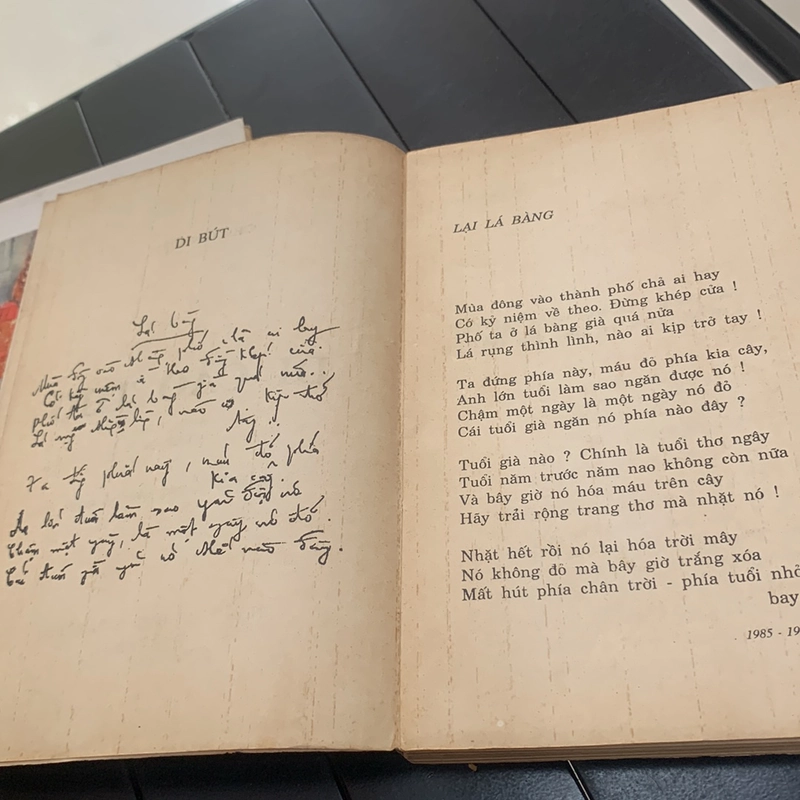 DI BÚT
Lại bàng
Mùa đông vào thành phố, chả ai hay
Có kỷ niệm về theo đừng khép cửa
phố ta ở lá bàng già quá nửa...
Lá rụng thình lình, nào ai kịp trở
tay...
Ta đứng phía này, máu đỏ phía
kia cây.
Anh lớn tuổi làm sao được nó
Chậm một ngày, là một ngày nó đỏ.
Cái tuổi già nó nào đây.
LẠI LÁ BÀNG
Mùa đông vào thành phố chả ai hay
Có kỷ niệm về theo. Đừng khép cửa !
Phố ta ở lá bàng già quá nửa
Lá rụng thình lình, nào ai kịp trở tay !
Ta đứng phía này, máu đỏ phía kia cây,
Anh lớn tuổi làm sao ngăn được nó !
Chậm một ngày là một ngày nó đỏ
Cái tuổi già ngăn nó phía nào đây ?
Tuổi già nào ? Chính là tuổi thơ ngây
Tuổi năm trước năm nao không còn nữa
Và bây giờ nó hóa máu trên cây
Hãy trải rộng trang thơ mà nhặt nó !
Nhặt hết rồi nó lại hóa trời mây
Nó không đỏ mà bây giờ trắng xóa
Mất hút phía chân trời - phía tuổi nhỏ
bay
1985 - 19